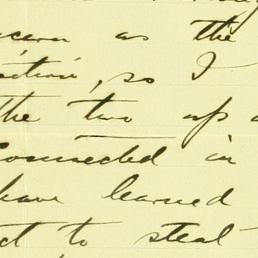 as the
so I
the two up
connected in
have learned
to steal